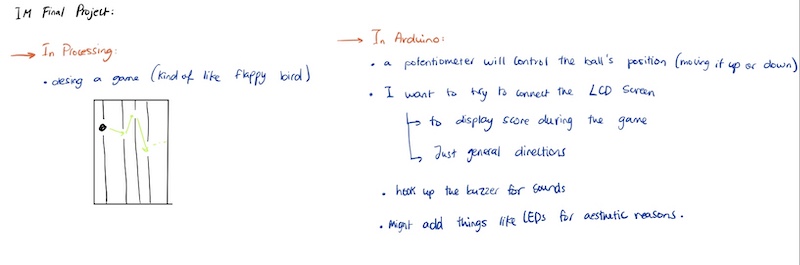 IM Final Project:
→ In Processing:
• desing a game (kind of like flappy bird)
→ In Arduino:
• a potentiometer will control the ball's position (moving it up or down)
• I want to try to connect the LCD screen
↳ to display score during the game
↳ Just general directions
• hook up the buzzer for sounds
• might add things like LEDs for aesthetic reasons.